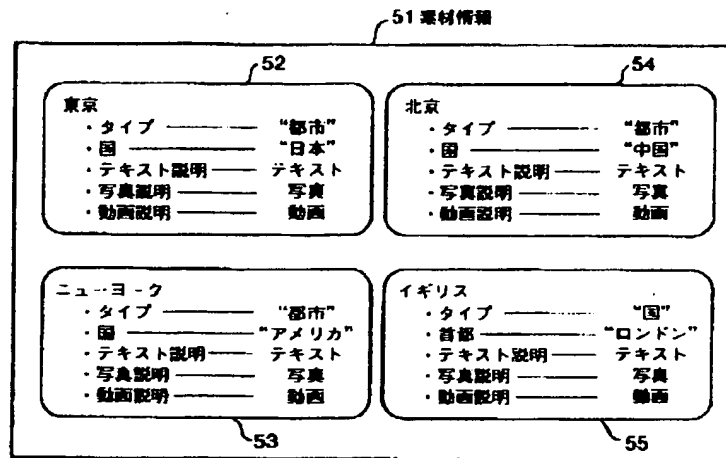 51 素材情報
52
東京
・タイプ “都市”
・国 “日本”
・テキスト説明 テキスト
・写真説明 写真
・動画説明 動画
54
北京
・タイプ “都市”
・国 “中国”
・テキスト説明 テキスト
・写真説明 写真
・動画説明 動画
ニューヨーク
・タイプ “都市”
・国 “アメリカ”
・テキスト説明 テキスト
・写真説明 写真
・動画説明 動画
53
イギリス
・タイプ “国”
・首都 “ロンドン”
・テキスト説明 テキスト
・写真説明 写真
・動画説明 動画
55